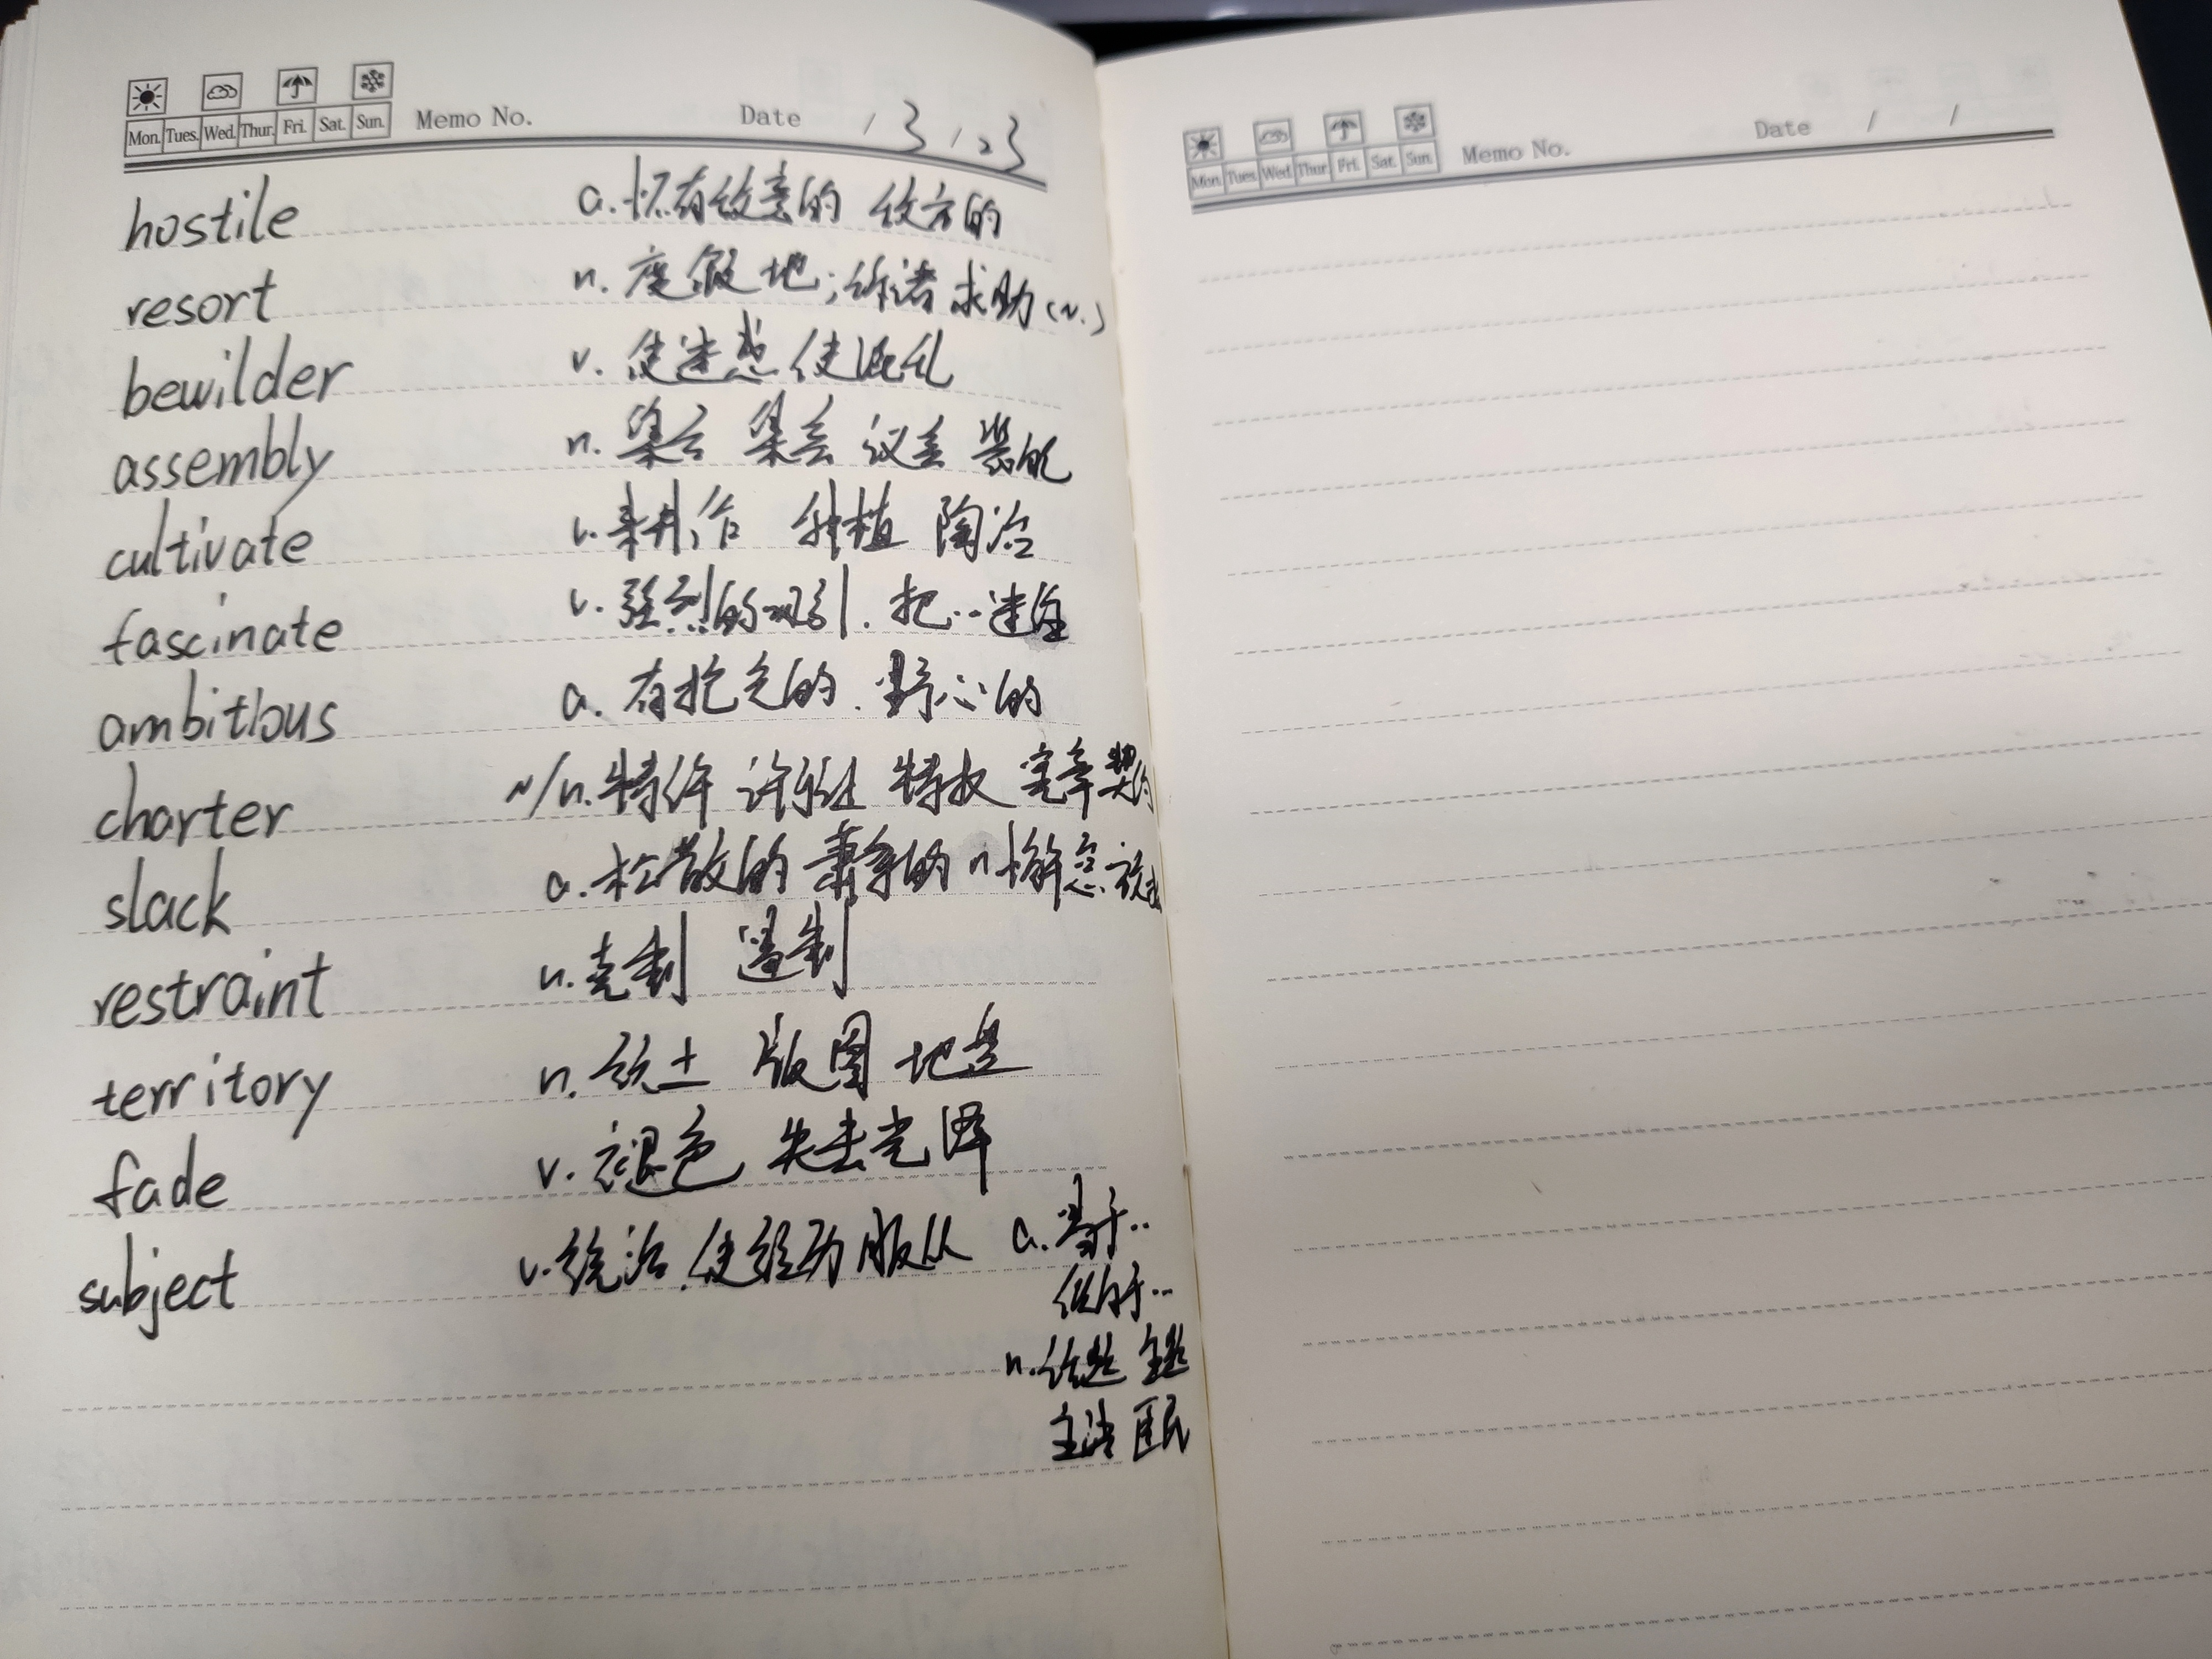 Mon. Tues. Wed. Thur. Fri. Sat. Sun. Memo No. Date / 3 / 23
hostile a. 怀有敌意的 敌方的
resort n. 度假地; 诉诸 求助 (v.)
bewilder v. 使迷惑 使混乱
assembly n. 集合 集会 议会 装配
cultivate v. 耕作 种植 陶冶
fascinate v. 强烈的吸引. 把…迷住
ambitious a. 有抱负的. 野心的
charter v/n. 特许 许可证 特权 宪章 契约
slack a. 松散的 萧条的 n 懈怠
restraint n. 克制 遏制
territory n. 领土 版图 地盘
fade v. 褪色 失去光泽
subject v. 统治. 使经历 服从 a. 易于..
n. 话题 主题
主语 臣民
Mon. Tues. Wed. Thur. Fri. Sat. Sun. Memo No. Date / /